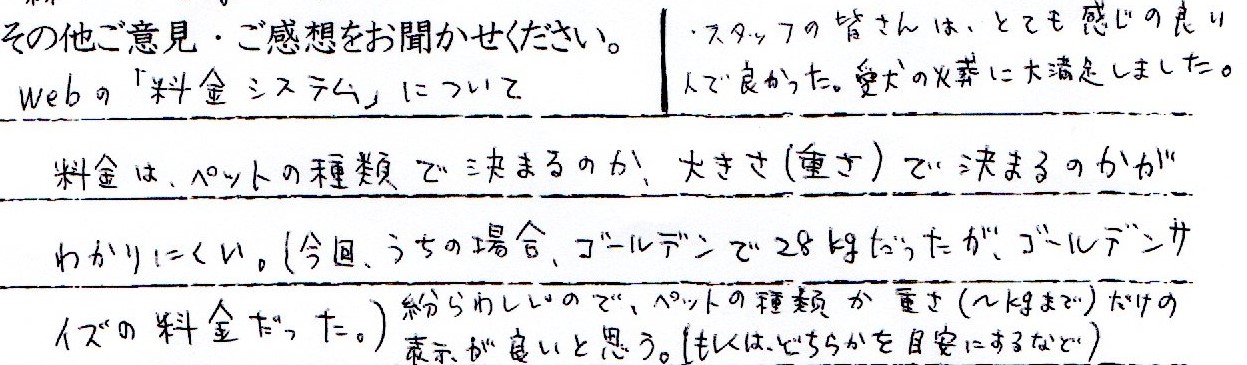 その他ご意見・ご感想をお聞かせください。
Webの「料金システム」について
・スタッフの皆さんは、とても感じの良い
人で良かった。愛犬の火葬に大満足しました。
料金は、ペットの種類で決まるのか、大きさ(重さ)で決まるのかが
わかりにくい。(今回、うちの場合、ゴールデンで28kgだったが、ゴールデンサ
イズの料金だった。)
紛らわしいので、ペットの種類か重さ(〜kgまで)だけの
表示が良いと思う。(もしくは、どちらかを目安にするなど)